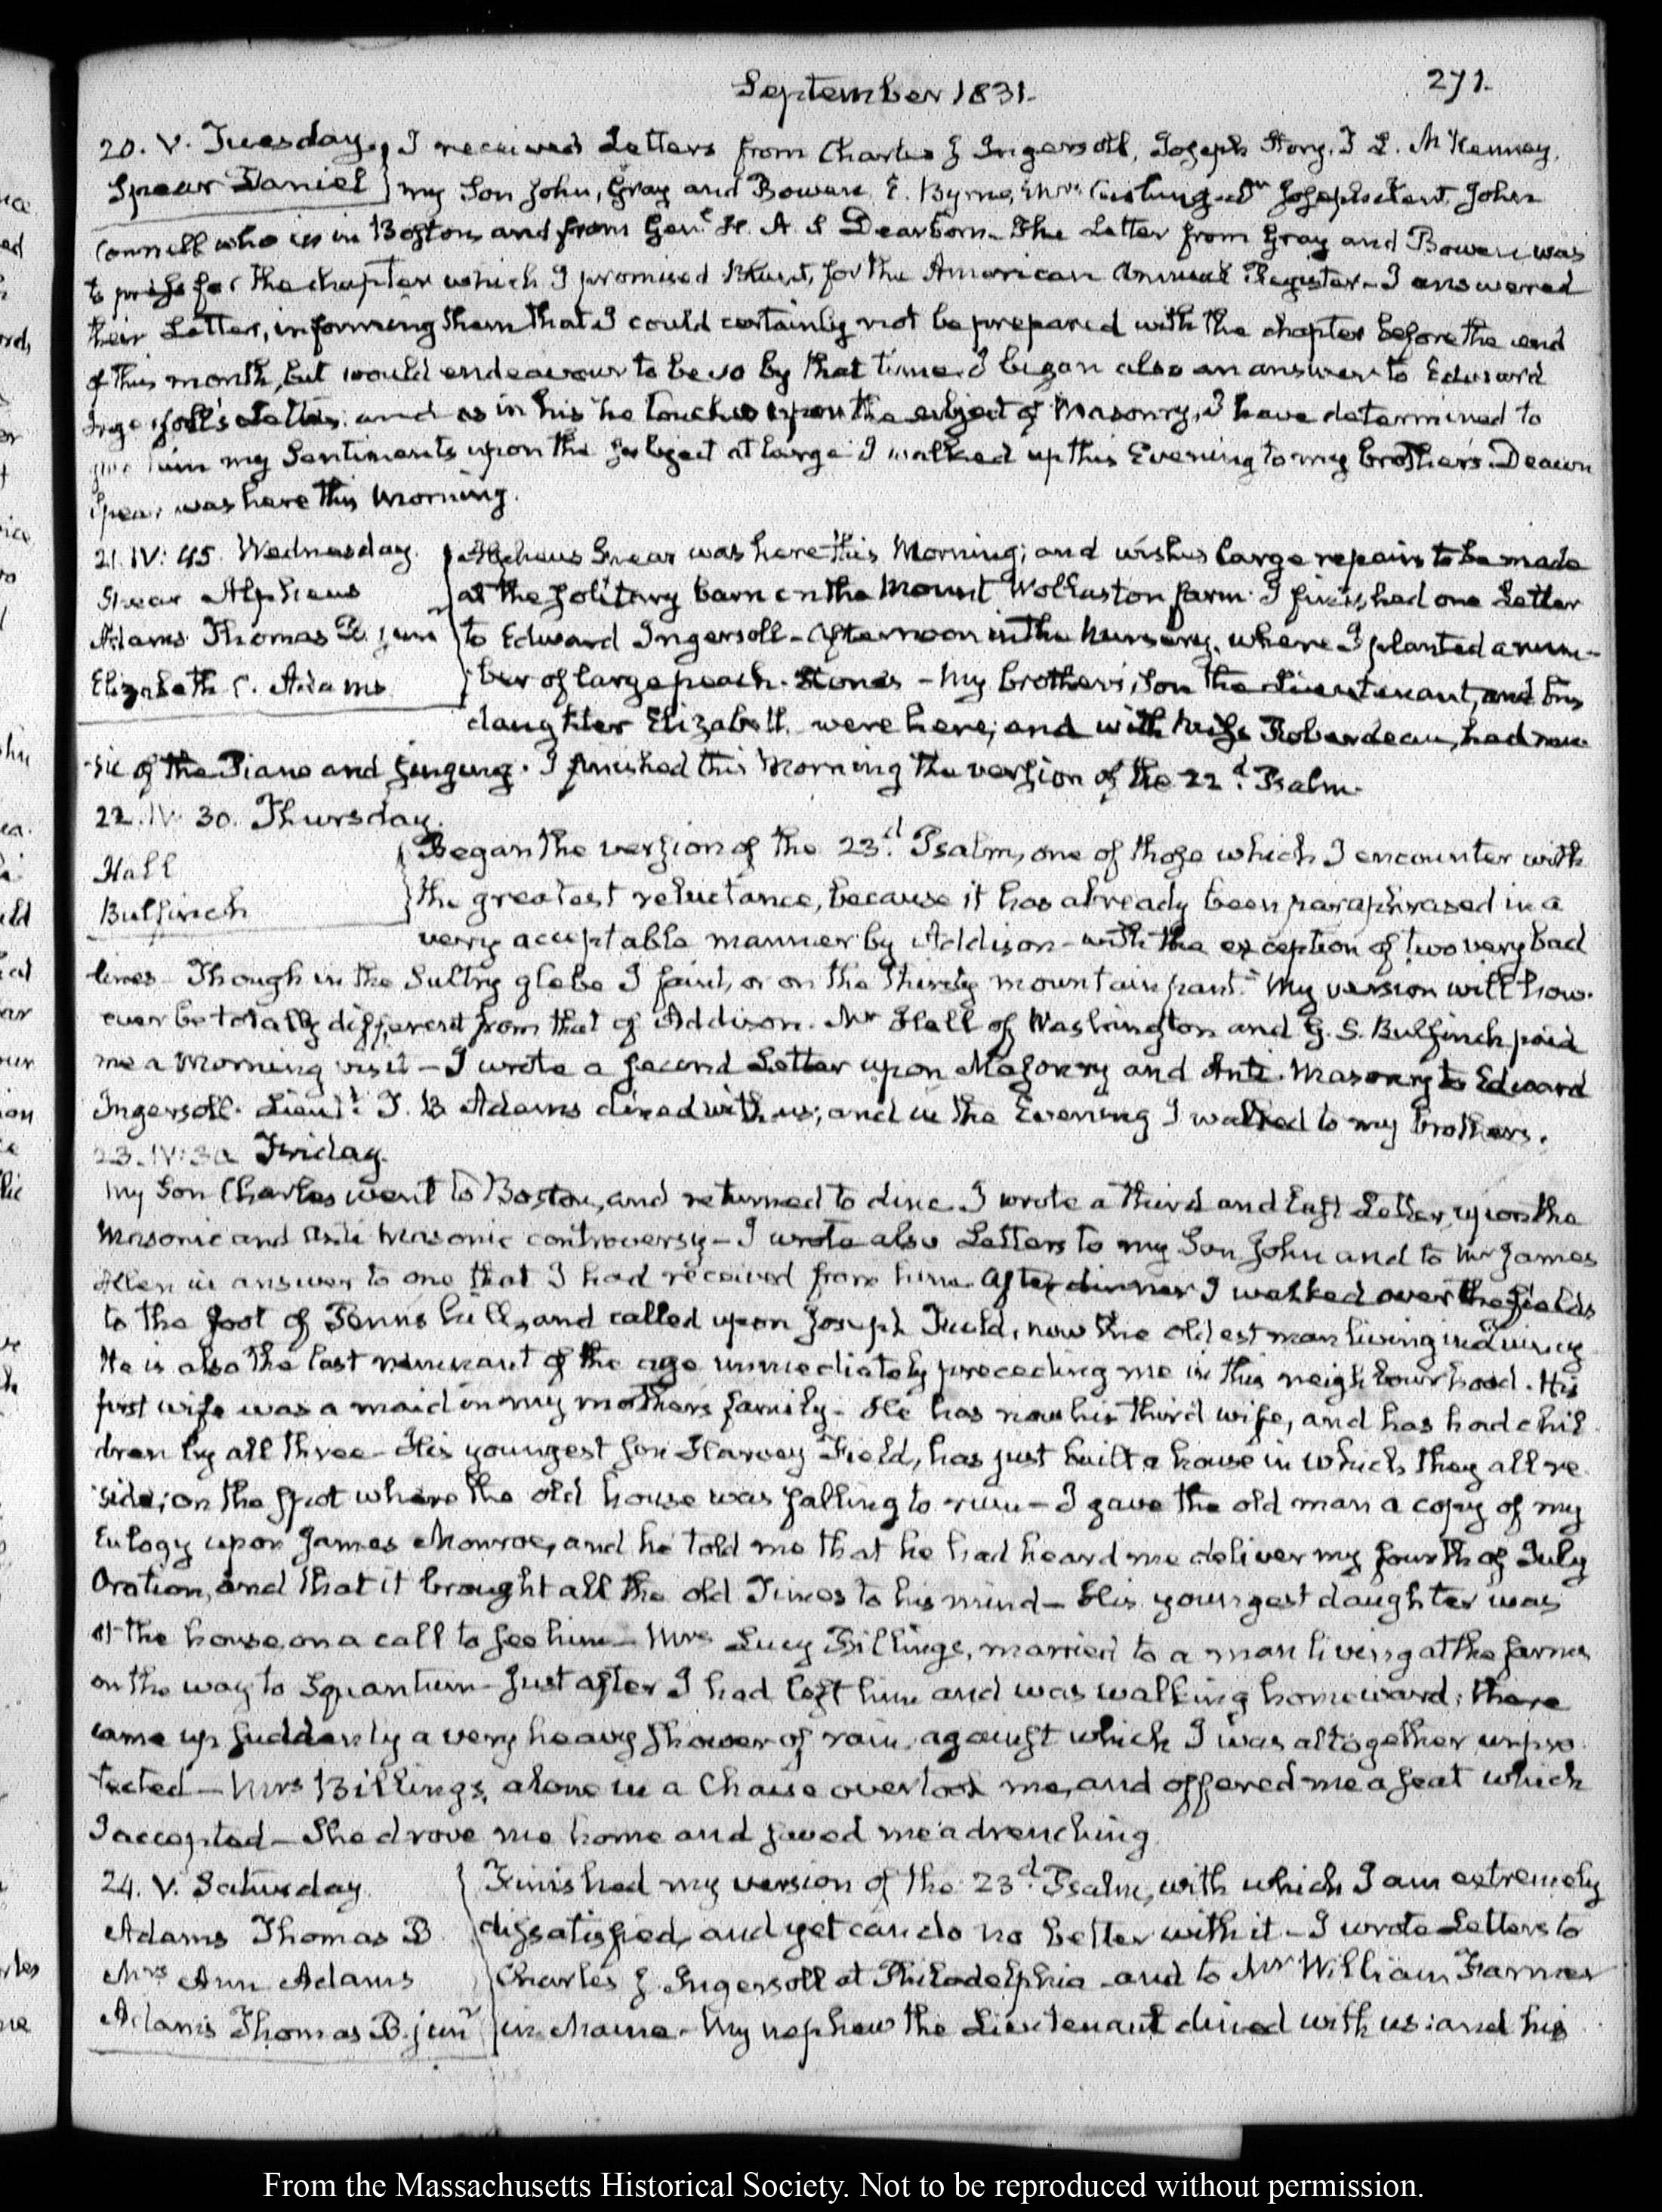 September 1831.
271.
20. V. Tuesday. I received Letters from Charles J Ingersoll, Joseph Hony, T L. McKenney,
Spear Daniel my Son John, Gray and Bowen E. Byrne, Mrs Cushing John
Connell who is in Boston, and from Genl H. A. S Dearborn. The Letter from Gray and Bowen was
to press for the chapter which I promised Blunt, for the American Annual Register - I answered
their Letter, informing them that I could certainly not be prepared with the chapter before the end
of this month, but would endeavour to be so by that time. I began also an answer to Edward
Ingersoll's Letter; and as in his he touches upon the subject of Masonry, I have determined to
give him my Sentiments upon the subject at large. I walked up this Evening to my brother's. Deacon
Spear was here this Morning.
21. IV: 45. Wednesday. Alpheus Spear was here this Morning; and wishes large repairs to be made
Spear Alpheus at the solitary barn on the Mount Wollaston farm. I finished one Letter
Adams Thomas B. junr to Edward Ingersoll - Afternoon in the Nursery, where I planted a num-
Elizabeth C. Adams ber of large peach-stones - My brother's, Son the Lieutenant, and his
daughter Elizabeth were here; and with Miss Roberdeau, had mu
sic of the Piano and singing. I finished this Morning the version of the 22d. Psalm.
22. IV. 30. Thursday.
Began the version of the 23d. Psalm, one of those which I encounter with
Hall the greatest reluctance, because it has already been paraphrased in a
Bulfinch very acceptable manner by Addison - with the exception of two very bad
lines - Though in the Sultry glebe I faint, or on the thirsty mountain pant." My version will how-
ever be totally different from that of Addison. Mr Hall of Washington and G. S. Bulfinch paid
me a Morning visit - I wrote a second Letter upon Masonry and Anti-Masonry to Edward
Ingersoll. Lieutt. T. B Adams dined with us; and in the Evening I walked to my brothers.
23. IV: 30. Friday.
My Son Charles went to Boston, and returned to dine. I wrote a third and last Letter, upon the
Masonic and Anti Masonic controversy - I wrote also Letters to my Son John and to Mr James
Allen in answer to one that I had received from him. After dinner I walked over the fields
to the foot of Penns hill, and called upon Joseph Field, now the oldest man living in Quincy
He is also the last remnant of the age immediately preceding me in this neighbourhood. His
first wife was a maid in my mothers family - He has now his third wife, and has had chil
dren by all three - His youngest son Harvey Field, has just built a house in which they all re
side; on the spot where the old house was falling to ruin - I gave the old man a copy of my
Eulogy upon James Monroe, and he told me that he had heard me deliver my fourth of July
Oration, and that it brought all the old Times to his mind - His youngest daughter was
at the house, on a call to see him - Mrs Lucy Billings, married to a man living at the farms
on the way to Squantum - Just after I had left him and was walking homeward, there
came up suddenly a very heavy shower of rain, against which I was altogether unpro
tected - Mrs Billings, alone in a Chaise overtook me, and offered me a seat which
I accepted - She drove me home and saved me a drenching.
24. V. Saturday Finished my version of the 23d. Psalm, with which I am extremely
Adams Thomas B. dissatisfied, and yet can do no better with it - I wrote Letters to
Mrs Ann Adams Charles J. Ingersoll at Philadelphia and to Mr William Farmer
Adams Thomas B. junr in Maine - My nephew the Lieutenant dined with us: and his
From the Massachusetts Historical Society. Not to be reproduced without permission.